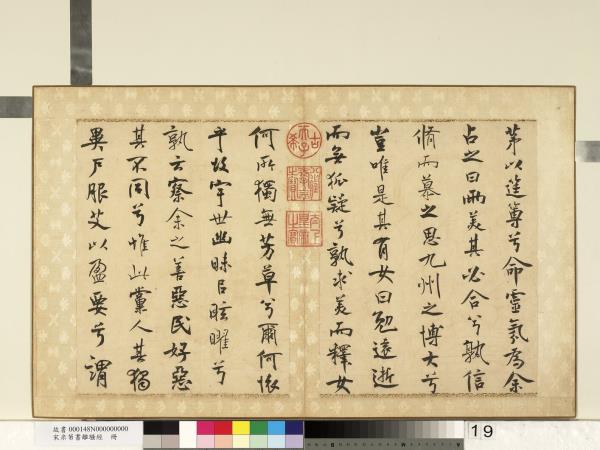 茅以筳篿兮命靈氛為余
占之曰兩美其必合兮孰信
脩而慕之思九州之博大兮
豈唯是其有女曰勉遠逝
而無狐疑兮孰求美而釋女
何所獨無芳草兮爾何懷
乎故宇世幽昧㠯眩曜兮
孰云察余之善惡民好惡
其不同兮惟此黨人其獨
異戶服艾以盈要兮謂
古希天子
故書 000148N000000000
宋米芾書離騷經 冊
19